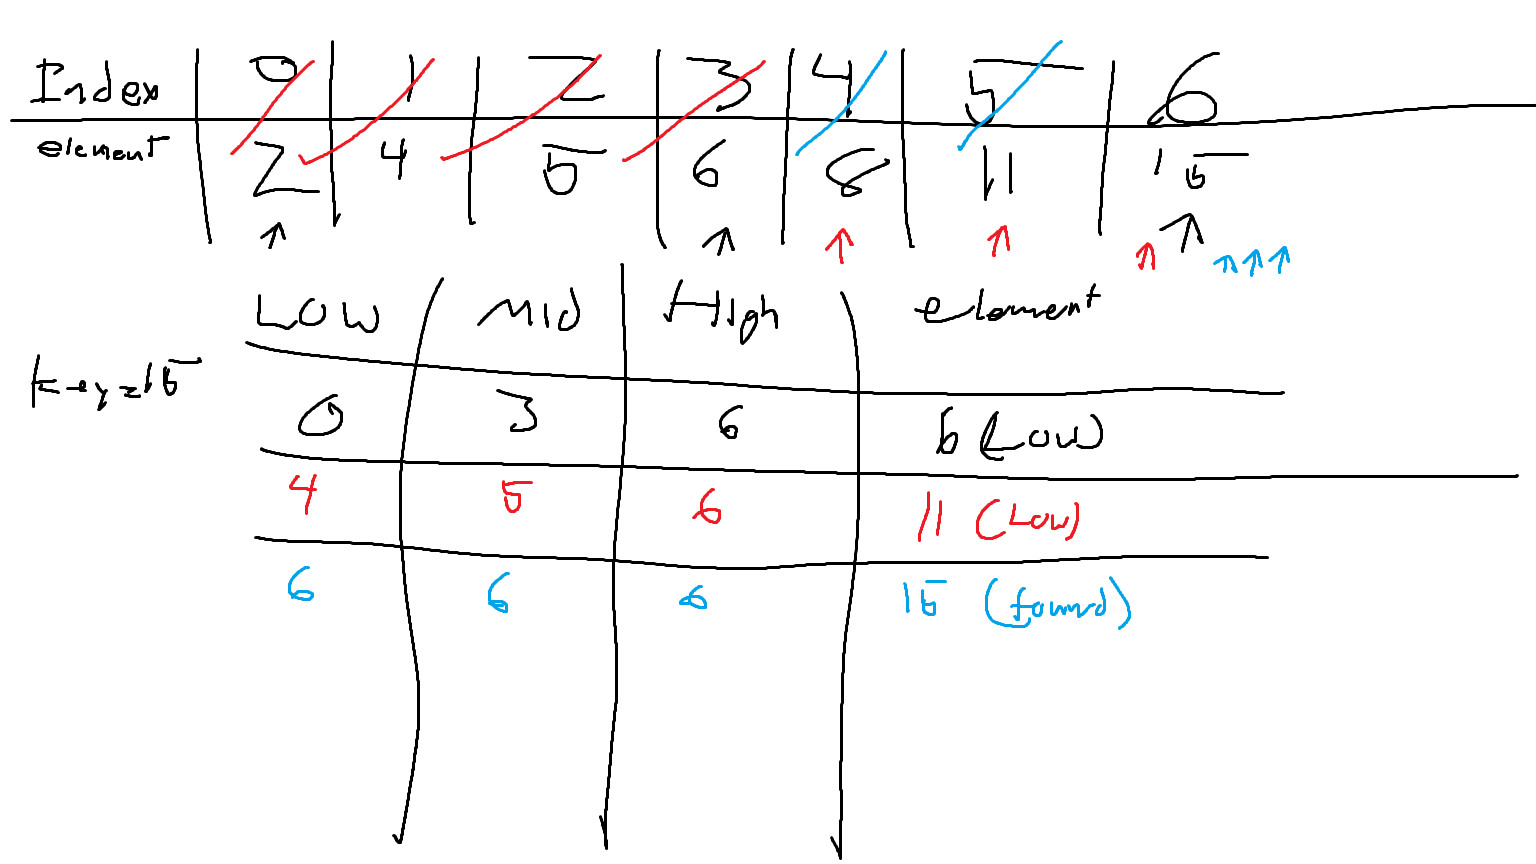 Index 0 1 2 3 4 5 6
element 2 4 5 6 8 11 15
Low Mid High element
key=15
0 3 6 6 (Low)
4 5 6 11 (Low)
6 6 6 15 (found)